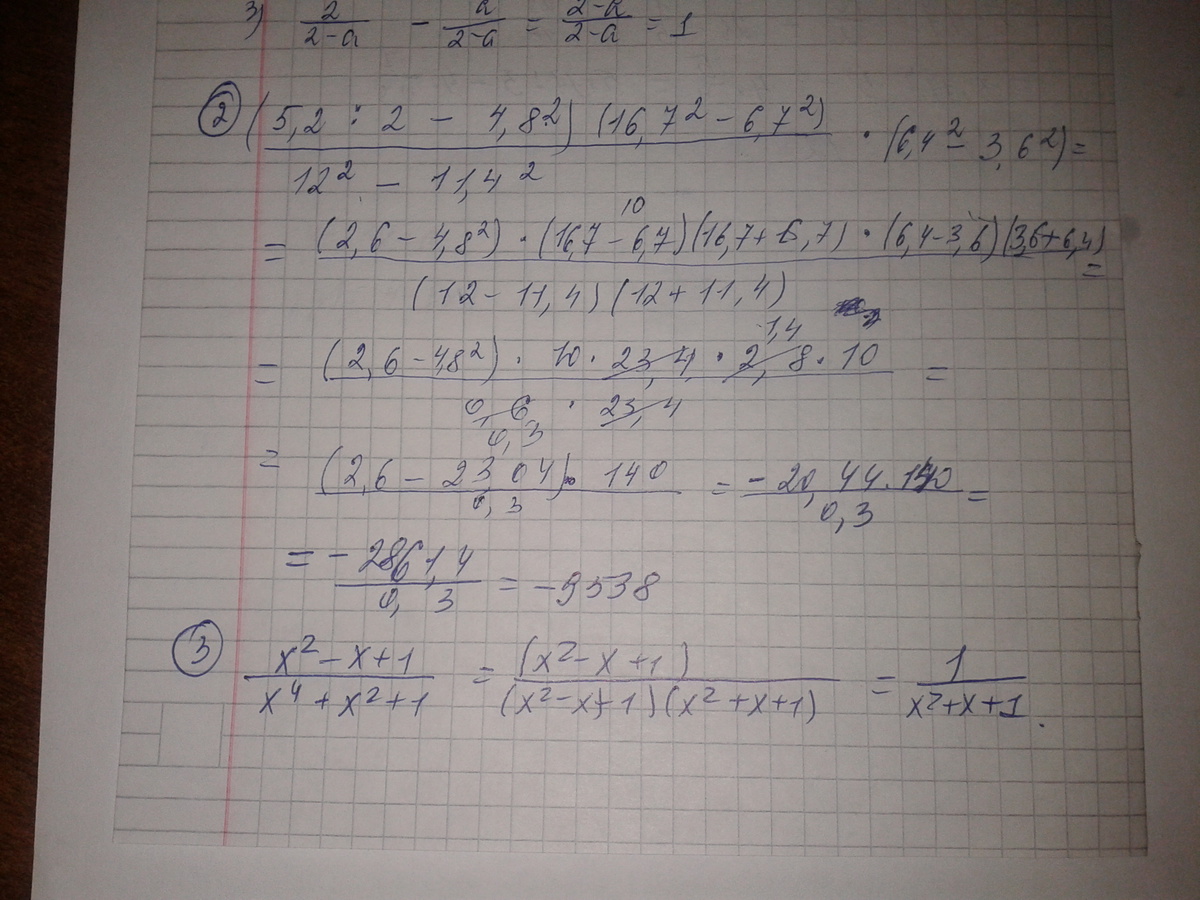 3) 2/(2-a) - a/(2-a) = (2-a)/(2-a) = 1
② (5,2 : 2 - 4,8²) (16,7² - 6,7²) / (12² - 11,4²) · (6,4² - 3,6²) =
= (2,6 - 4,8²) · (16,7 - 6,7) (16,7 + 6,7) · (6,4 - 3,6) (3,6 + 6,4) / (12 - 11,4) (12 + 11,4) =
10
= (2,6 - 4,8²) · 10 · 23,4 · 2,8 · 10 / 0,6 · 23,4 =
1,4
0,3
= (2,6 - 23,04) · 140 / 0,3 = -20,44 · 140 / 0,3 =
= -2861,4 / 0,3 = -9538
③ (x² - x + 1) / (x⁴ + x² + 1) = (x² - x + 1) / (x² - x + 1) (x² + x + 1) = 1 / (x² + x + 1).